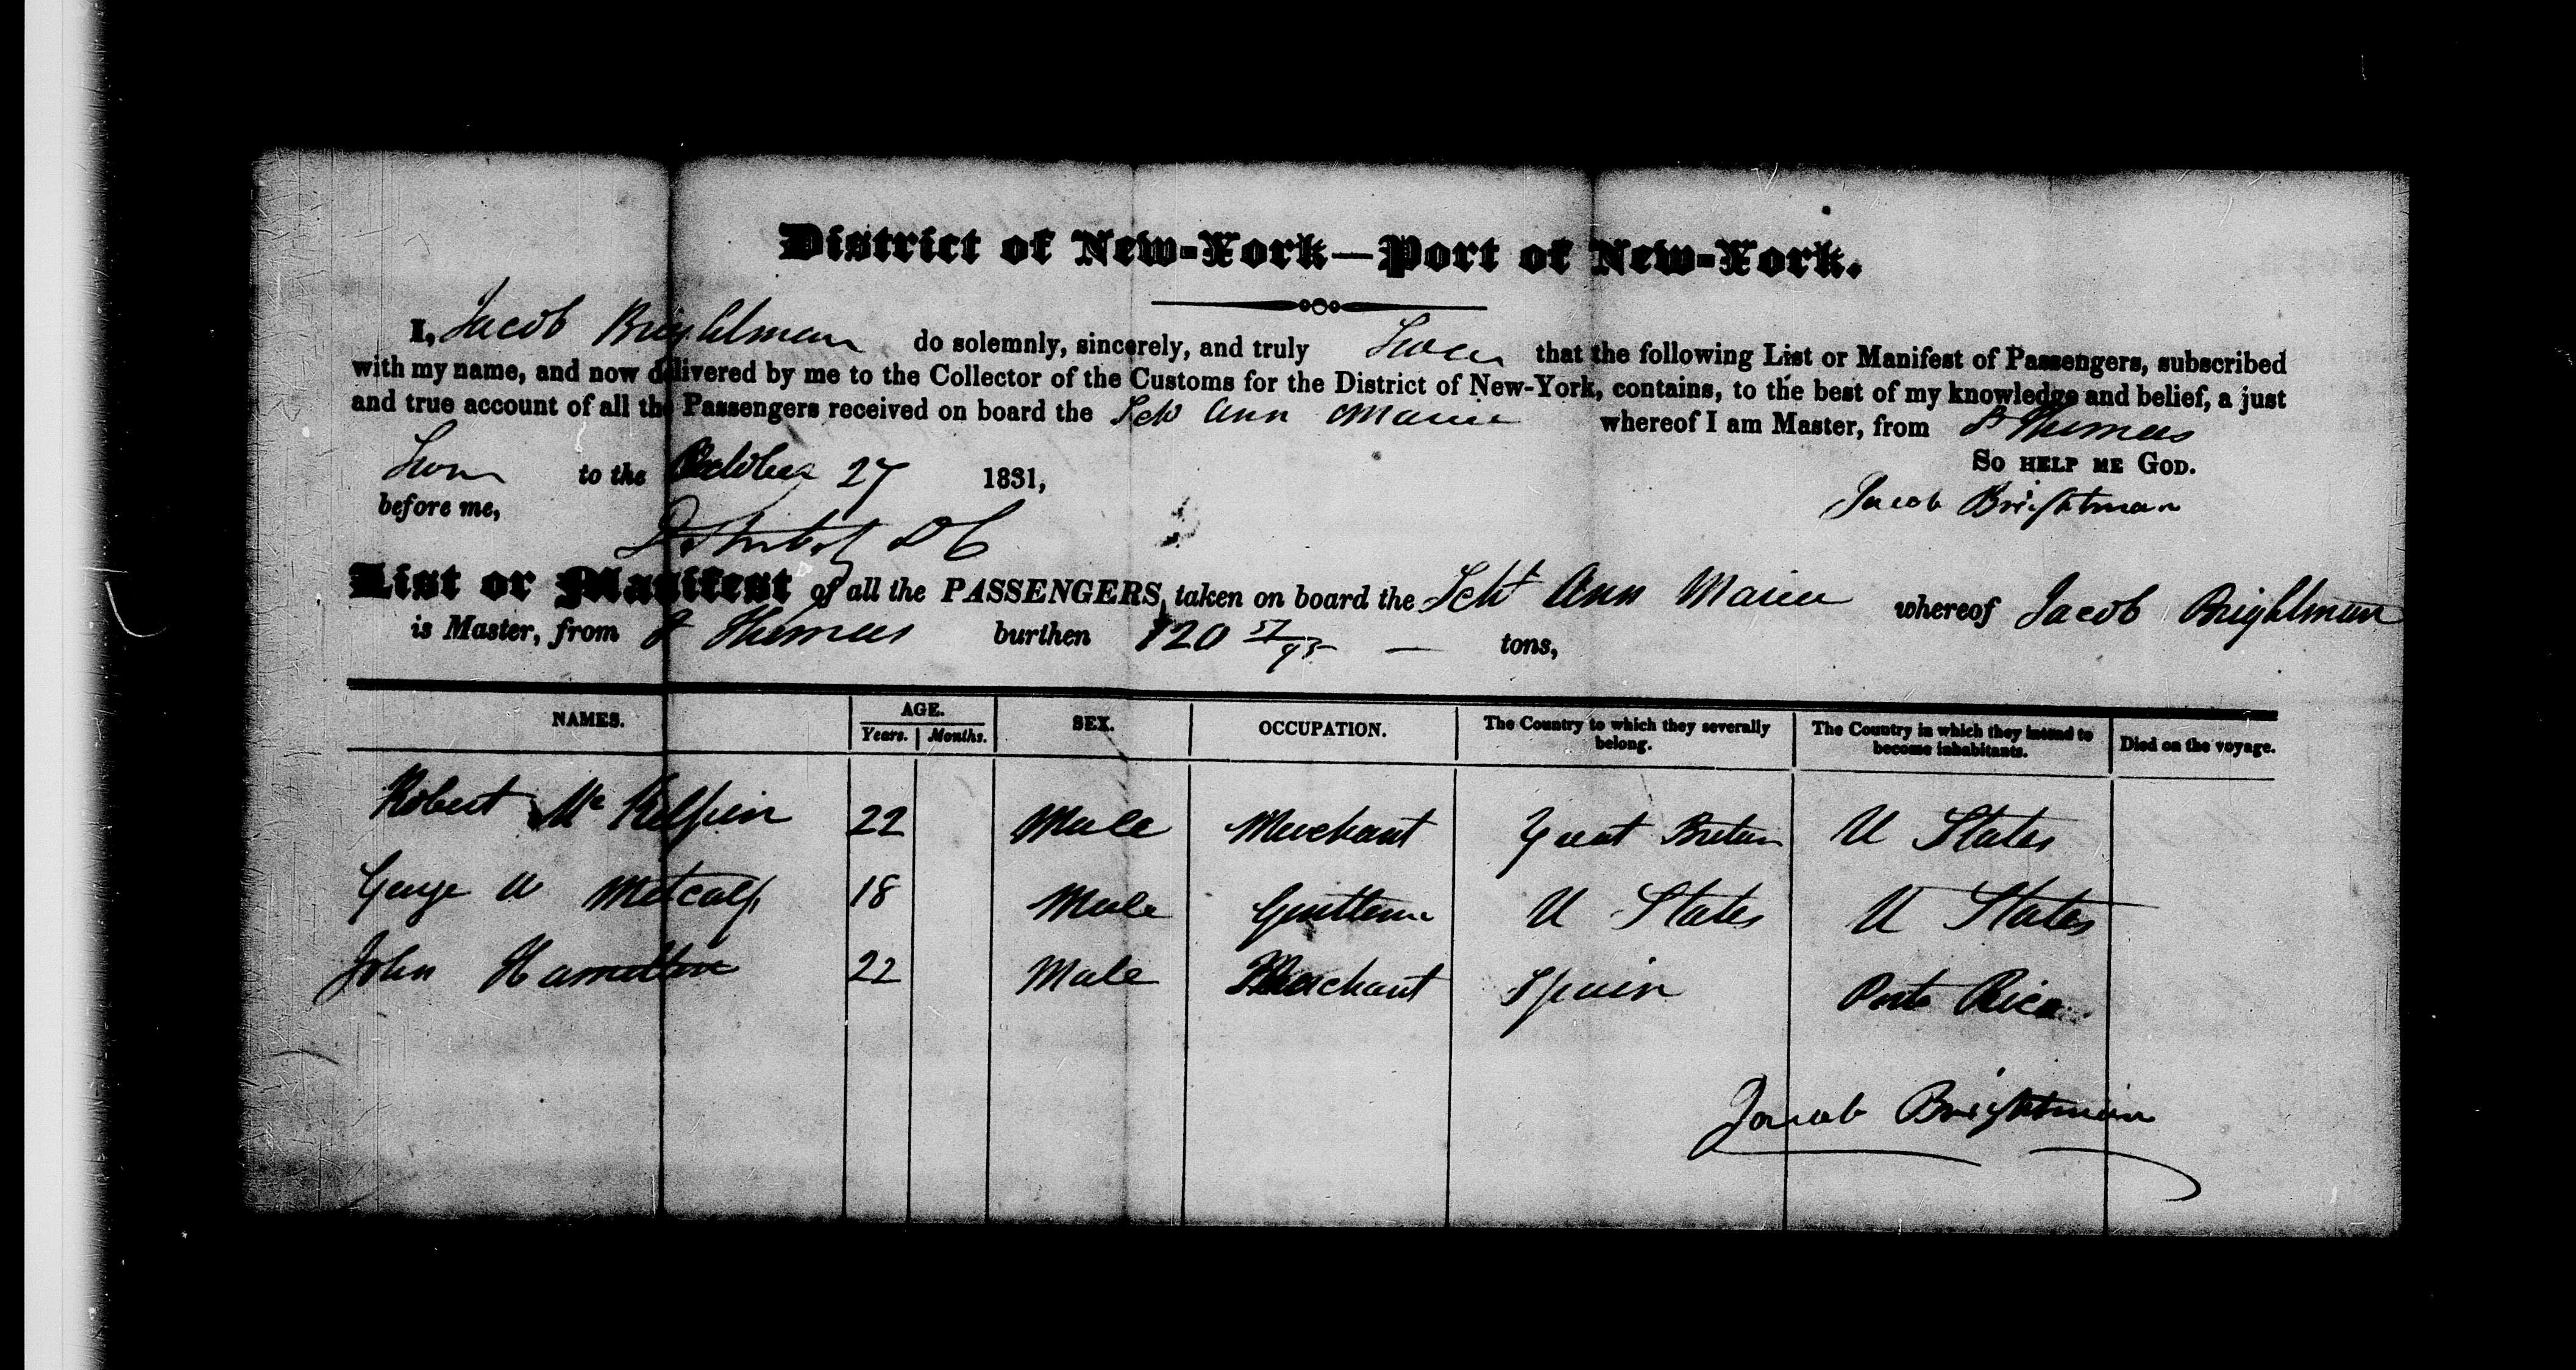 District of New-York—Port of New-York.
I, Jacob Brightman do solemnly, sincerely, and truly Swear that the following List or Manifest of Passengers, subscribed
with my name, and now delivered by me to the Collector of the Customs for the District of New-York, contains, to the best of my knowledge and belief, a just
and true account of all the Passengers received on board the Sch Ann Maria whereof I am Master, from St Thomas
Sworn to the October 27 1831, So help me God.
before me, Jacob Brightman
D C
List or Manifest of all the PASSENGERS, taken on board the Schr Ann Maria whereof Jacob Brightman
is Master, from St Thomas burthen 120 57/95 — tons,
NAMES. AGE. SEX. OCCUPATION. The Country to which they severally belong. The Country in which they intend to become inhabitants. Died on the voyage.
Years. Months.
Robert Mc Kelpin 22 Male Merchant Great Britain U States
George W Metcalf 18 Male Gentleman U States U States
John Hamilton 22 Male Merchant Spain Porto Rico
Jacob Brightman